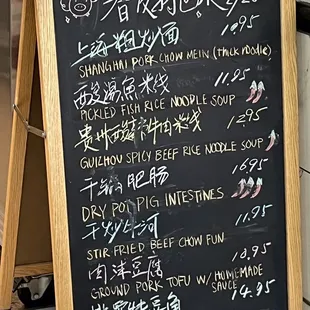 10.95
上海粗炒面
SHANGHAI PORK CHOW MEIN (thick noodle)
11.95
酸湯魚米线
PICKLED FISH RICE NOODLE SOUP
12.95
贵州酸辣牛肉米线
GUIZHOU SPICY BEEF RICE NOODLE SOUP
16.95
干锅肥肠
DRY POT PIG INTESTINES
11.95
干炒牛河
STIR FRIED BEEF CHOW FUN
10.95
肉沫豆腐
GROUND PORK TOFU W/ HOMEMADE
SAUCE
14.95